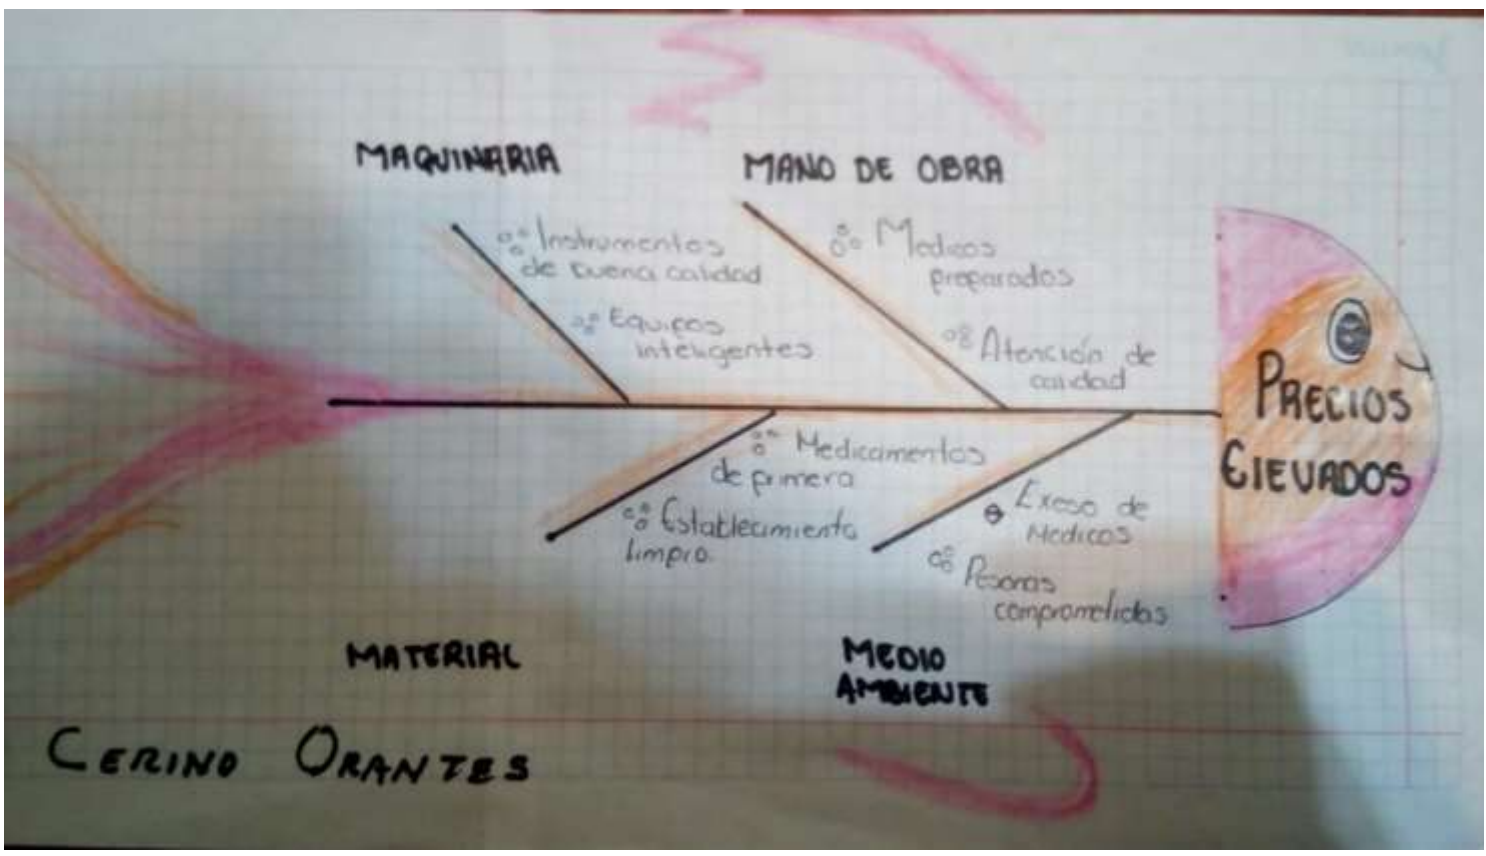 MAQUINARIA
MANO DE OBRA
Instrumentos
de buena calidad
Equipos
inteligentes
Medicos
preparados
Atención de
calidad
PRECIOS
ElEVADOS
Medicamentos
de primera
Establecimiento
limpio.
Exeso de
Medicos
Pesonas
comprometidas
MATERIAL
MEDIO
AMBIENTE
CERINO ORANTES